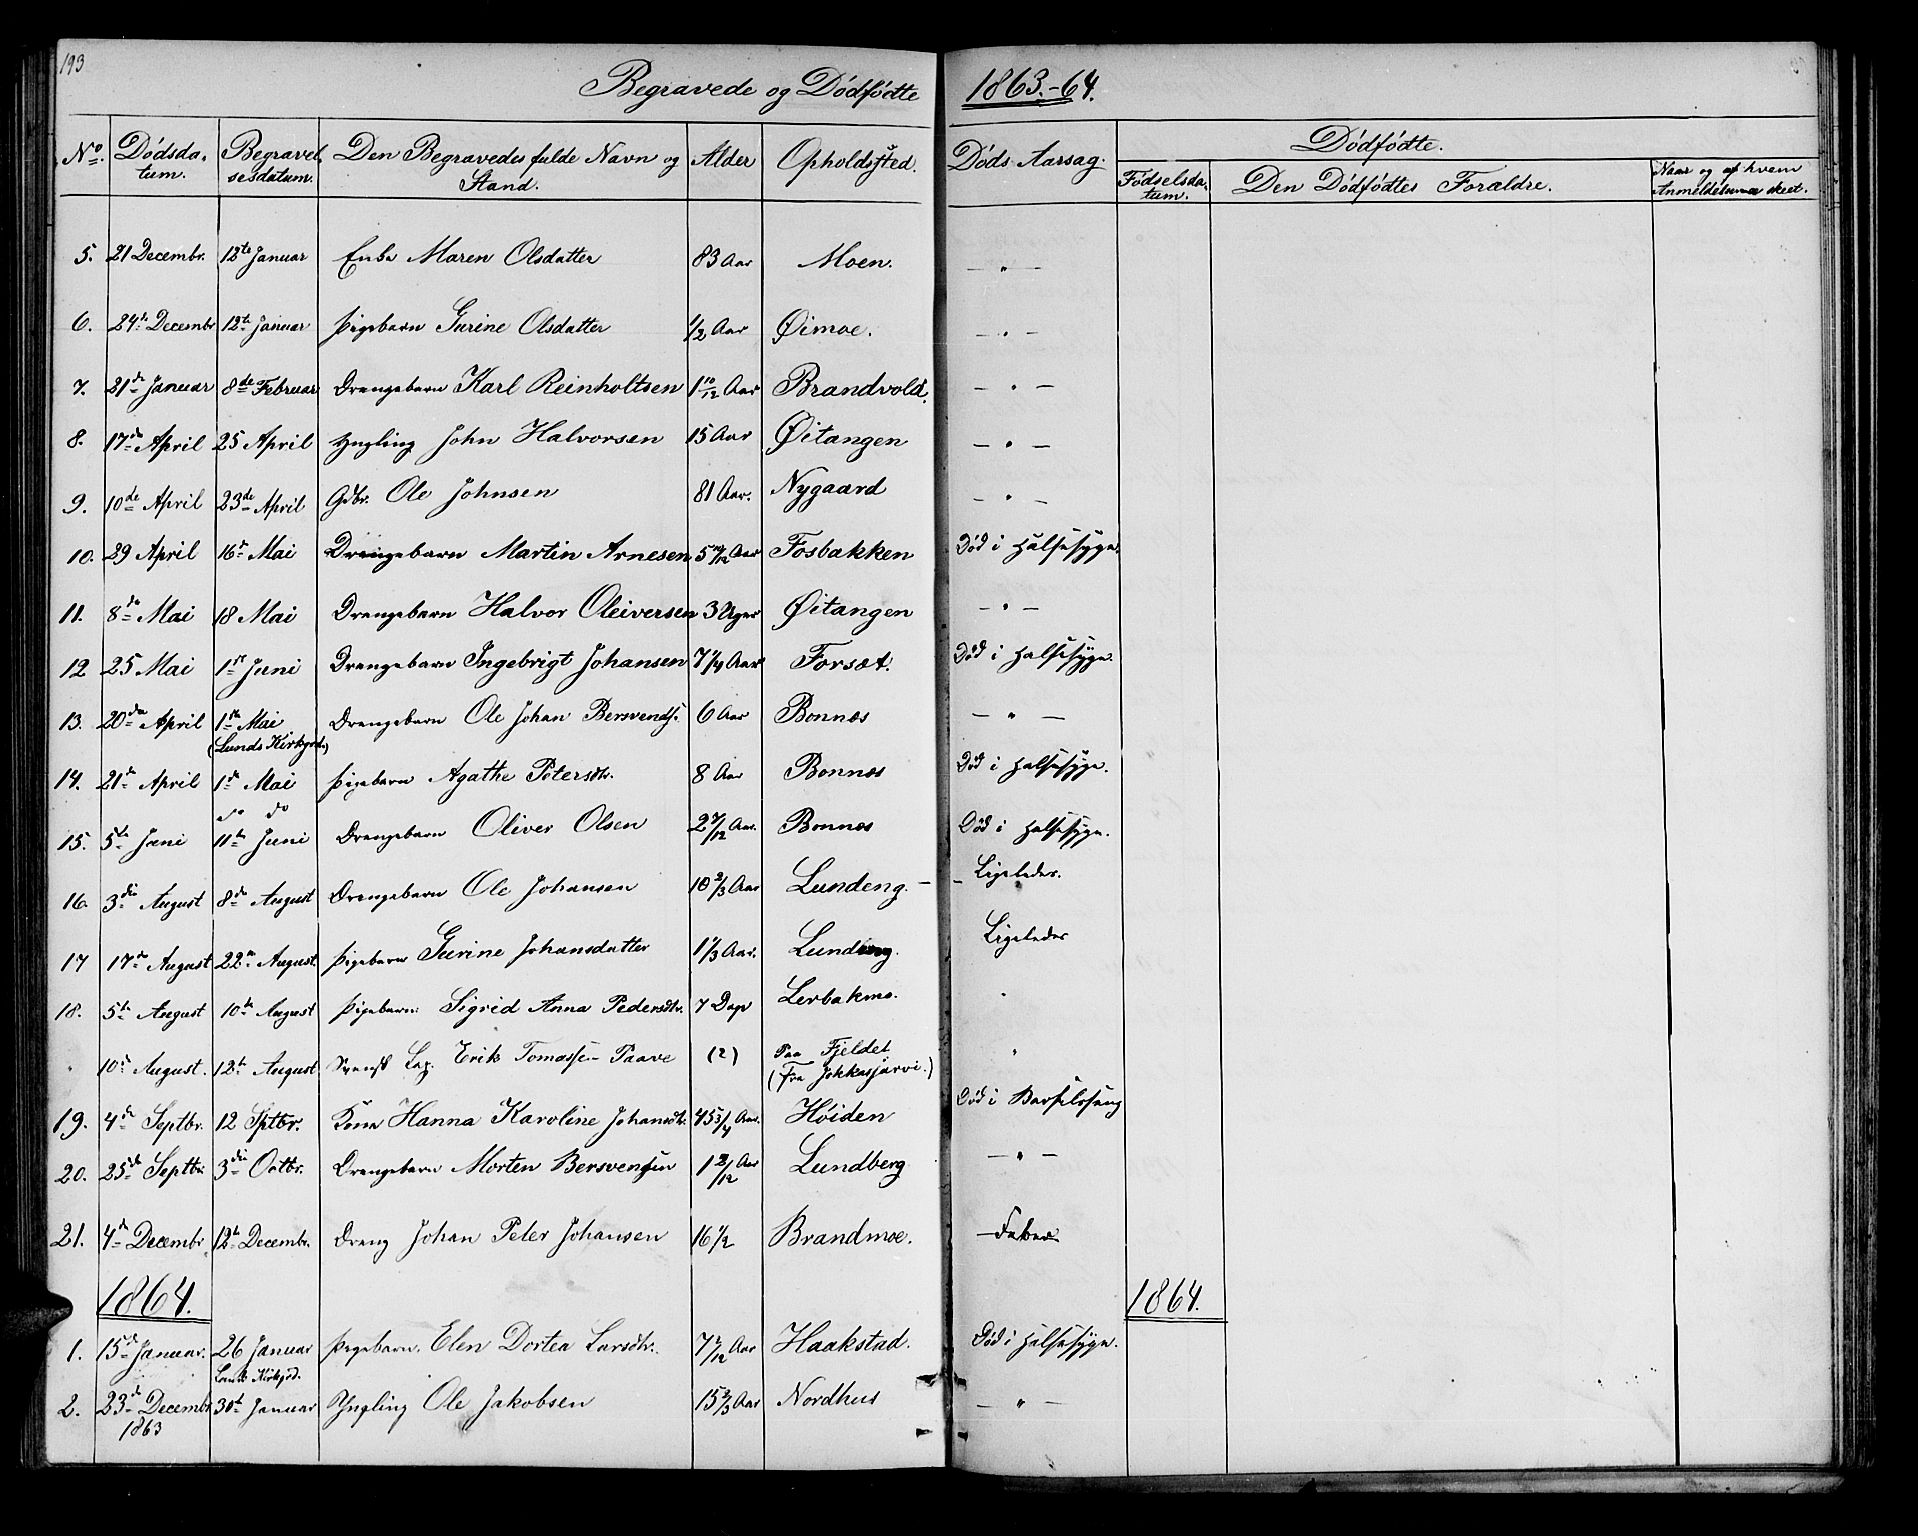 193
Begravede og Dødfødte 1863.-64.
No. Dødsda-tum. Begravel-sesdatum. Den Begravedes fulde Navn og Stand. Alder Opholdssted. Døds-Aarsag. Dødfødte.
Fødselsda-tum. Den Dødfødtes Forældre. Naar og af hvem Anmeldelserne skeet.
5. 21 Decembr. 12te Januar Enke Maren Olsdatter 83 Aar Moen. — " —
6. 24de Decembr 12te Januar Pigebarn Gurine Olsdatter 1/2 Aar Øimoe. — " —
7. 21de Januar 8de Februar Drengebarn Karl Reinholtsen 1 10/12 Aar Brandvold. — " —
8. 17de April 25 April Yngling John Halvorsen 15 Aar Øitangen — " —
9. 10de April 23de April Gdbr. Ole Johnsen 81 Aar. Nygaard — " —
10. 29 April 16de Mai Drengebarn Martin Arnesen 5 10/12 Aar Fosbakken Død i Halssyge.
11. 8de Mai 18 Mai Drengebarn Halvor Oleiversen 3 Uger Øitangen — " —
12 25 Mai 1ste Juni Drengebarn Ingebrigt Johansen 7 1/4 Aar Forsæt. Død i Halssyge.
13. 20de April 1ste Mai Drengebarn Ole Johan Bersvends. 6 Aar Bonnæs — " —
(Lunds Kirkgrd.)
14. 21de April 1de Mai Pigebarn Agathe Petersdtr. 8 Aar Bonnæs Død i Halssyge.
do do
15. 5te Juni 11te Juni Drengebarn Oliver Olsen 2 7/12 Aar. Bonnæs Død i Halssyge.
16. 3die August 8de August Drengebarn Ole Johansen 10 2/3 Aar Lundeng. — — Ligeledes.
17 17de August 22de August Pigebarn Gurine Johansdatter 1 1/3 Aar. Lundeng. Ligeledes
18. 5te August 10de August Pigebarn Sigrid Anna Pedersdtr. 7 Dage Lerbakmo. "
" 10de August. 12te August Svensk Lap. Erik Tomasse- Paave (?) Paa Fjeldet "
(Fra Jokkasjarvi.)
19. 4de Septbr. 12 Sptbr. Kone Hanna Karoline Johansdtr. 45 3/4 Aar. Høiden Død i Barselseng
20. 25de Septbr 3die Octbr. Drengebarn Morten Bersvensen 1 2/12 Aar Lundberg — " —
21. 4de Decembr 12te Decembr. Dreng Johan Peter Johansen 16 1/2 Brandmoe. — Feber.
1864. 1864.
1. 15de Januar. 26 Januar Pigebarn. Elen Dortea Larsdtr. 7 7/12 Aar Haakstad. Død i Halssyge.
Lunds Kirkgrd.
2. 23de Decembr 30te Januar Yngling Ole Jakobsen 15 2/3 Aar Nordhus — " —
1863